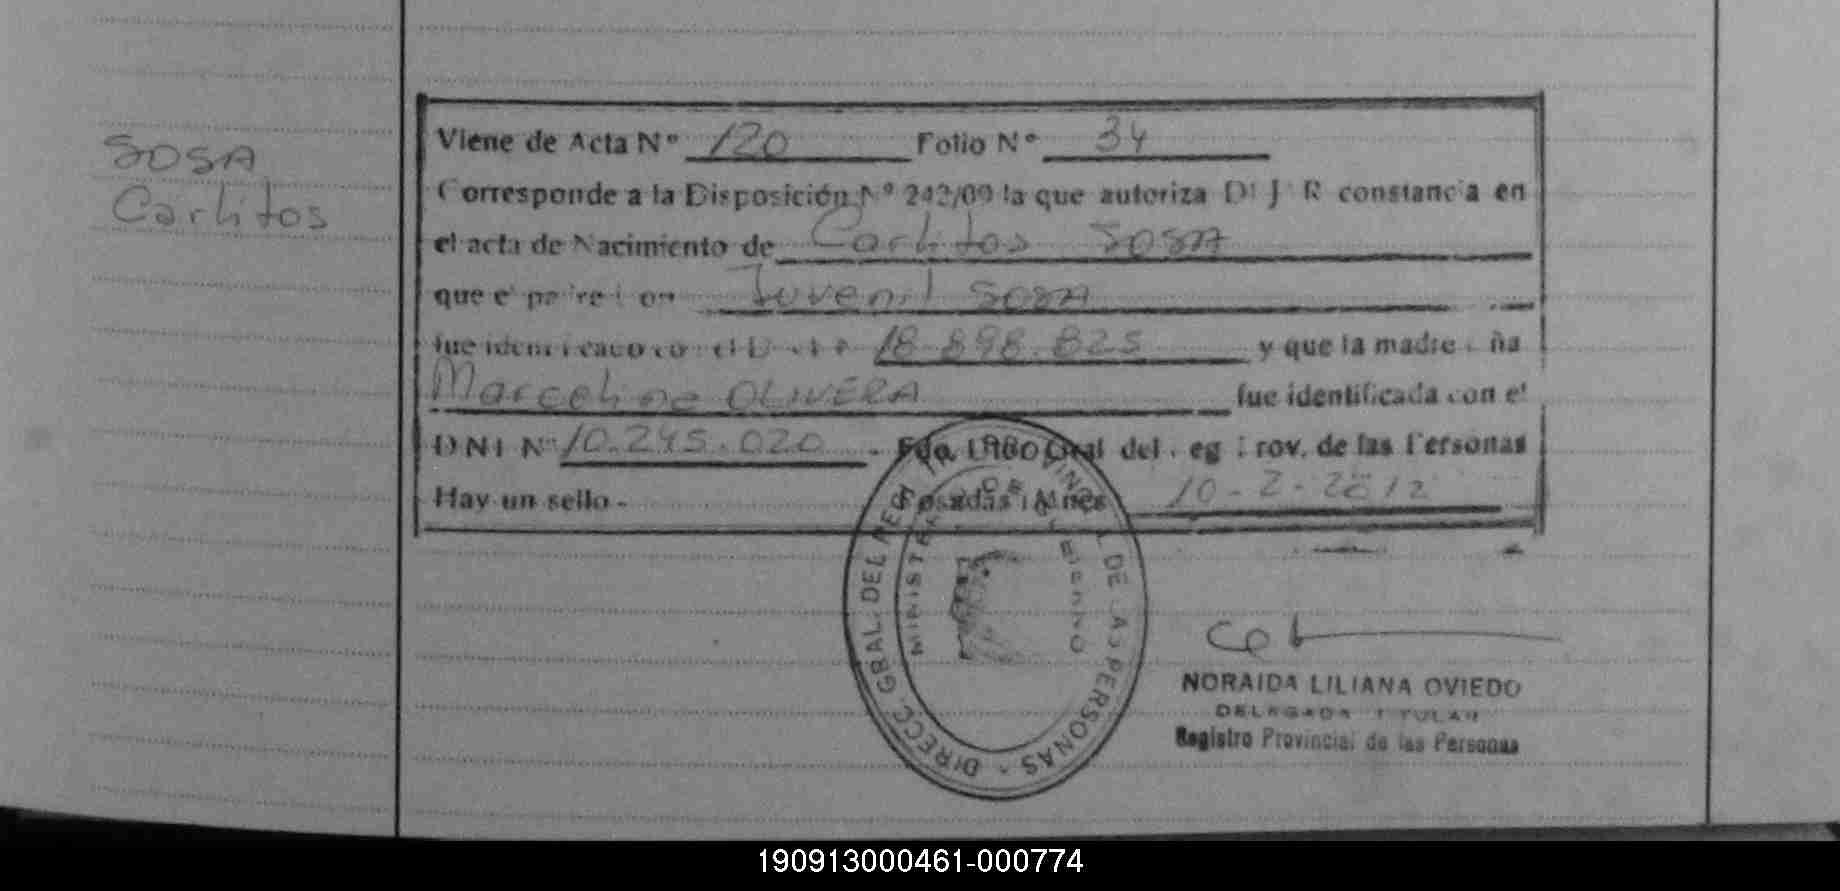 SOSA
Carlitos
Viene de Acta Nº 120 Folio Nº 34
Corresponde a la Disposición Nº 242/09 la que autoriza DEJAR constancia en
el acta de Nacimiento de Carlitos SOSA
que el padre Don Juvenil SOSA
fue identificado con el D 18.898.825 y que la madre Doña
Marceline OLIVERA fue identificada con el
DNI Nº 10.245.020 - Fdo. Gral del Reg Prov. de las Personas
Hay un sello - Posadas Mnes 10-2-2012
DIRECC. GBAL. DEL REGISTRO PROVINCIAL DE LAS PERSONAS -
MINISTERIO DE GOBIERNO
NORAIDA LILIANA OVIEDO
DELEGADA TITULAR
Registro Provincial de las Personas
190913000461-000774